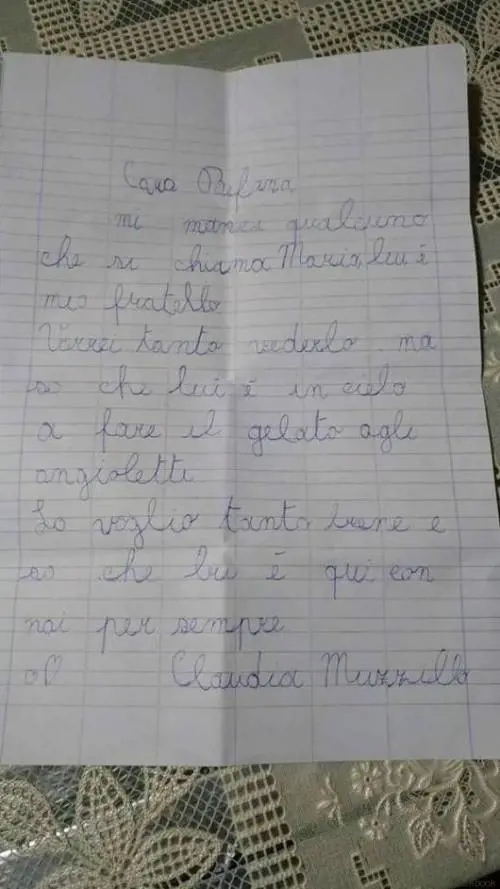 Cara Befana
mi manca qualcuno
che si chiama Mario, lui è
mio fratello
Vorrei tanto vederlo ma
so che lui è in cielo
a fare il gelato agli
angioletti
Lo voglio tanto bene e
so che lui è qui con
noi per sempre
Claudia Muzzillo